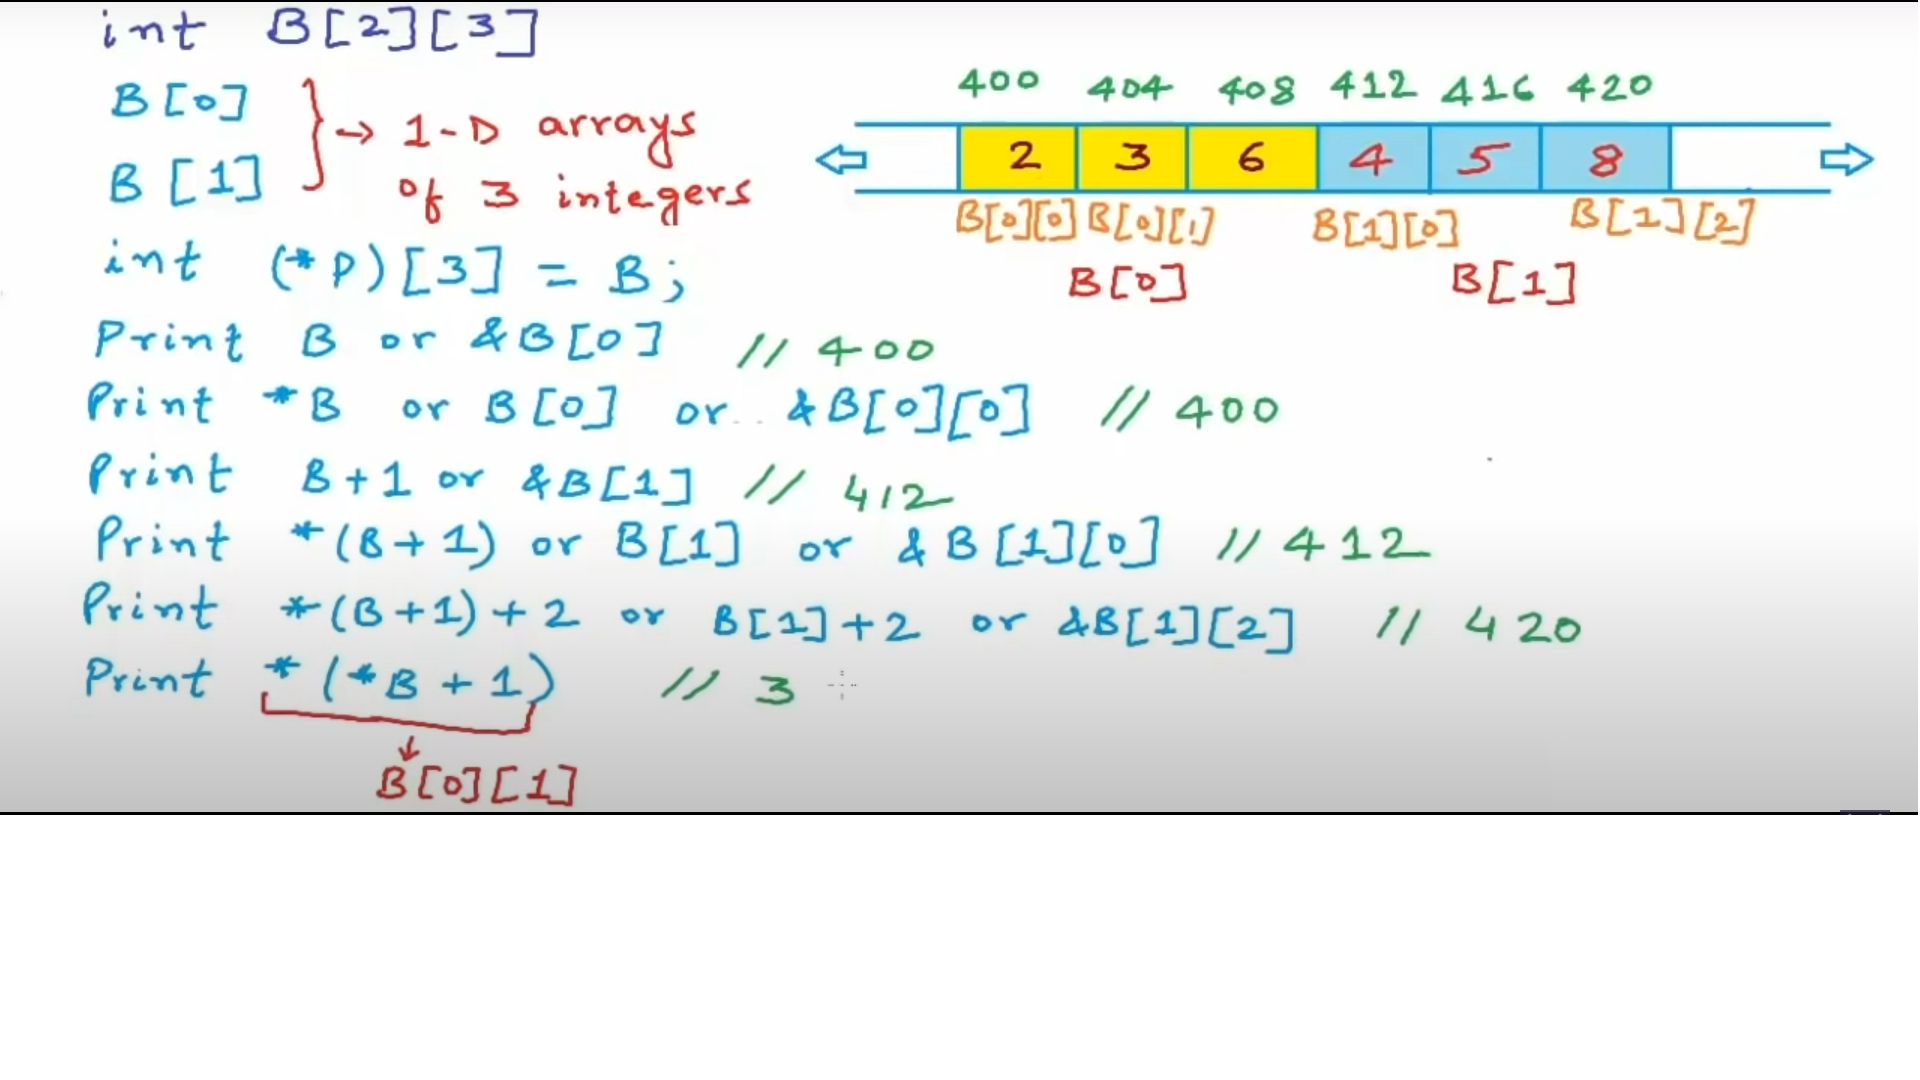 int B[2][3]
B[0]
B[1]
} → 1-D arrays
of 3 integers
400 404 408 412 416 420
2 3 6 4 5 8
B[0][0] B[0][1] B[1][0] B[1][2]
B[0] B[1]
int (*P)[3] = B;
Print B or &B[0] // 400
Print *B or B[0] or &B[0][0] // 400
Print B+1 or &B[1] // 412
Print *(B+1) or B[1] or &B[1][0] // 412
Print *(B+1)+2 or B[1]+2 or &B[1][2] // 420
Print *(*B+1) // 3
↓
B[0][1]